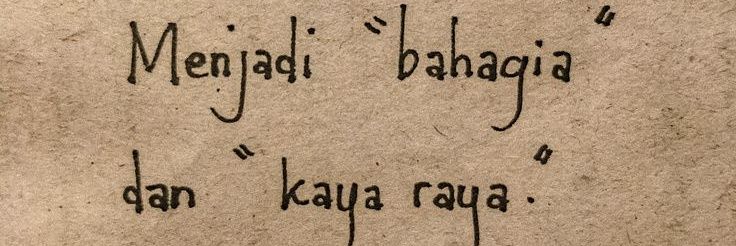 Menjadi "bahagia"
dan "kaya raya."